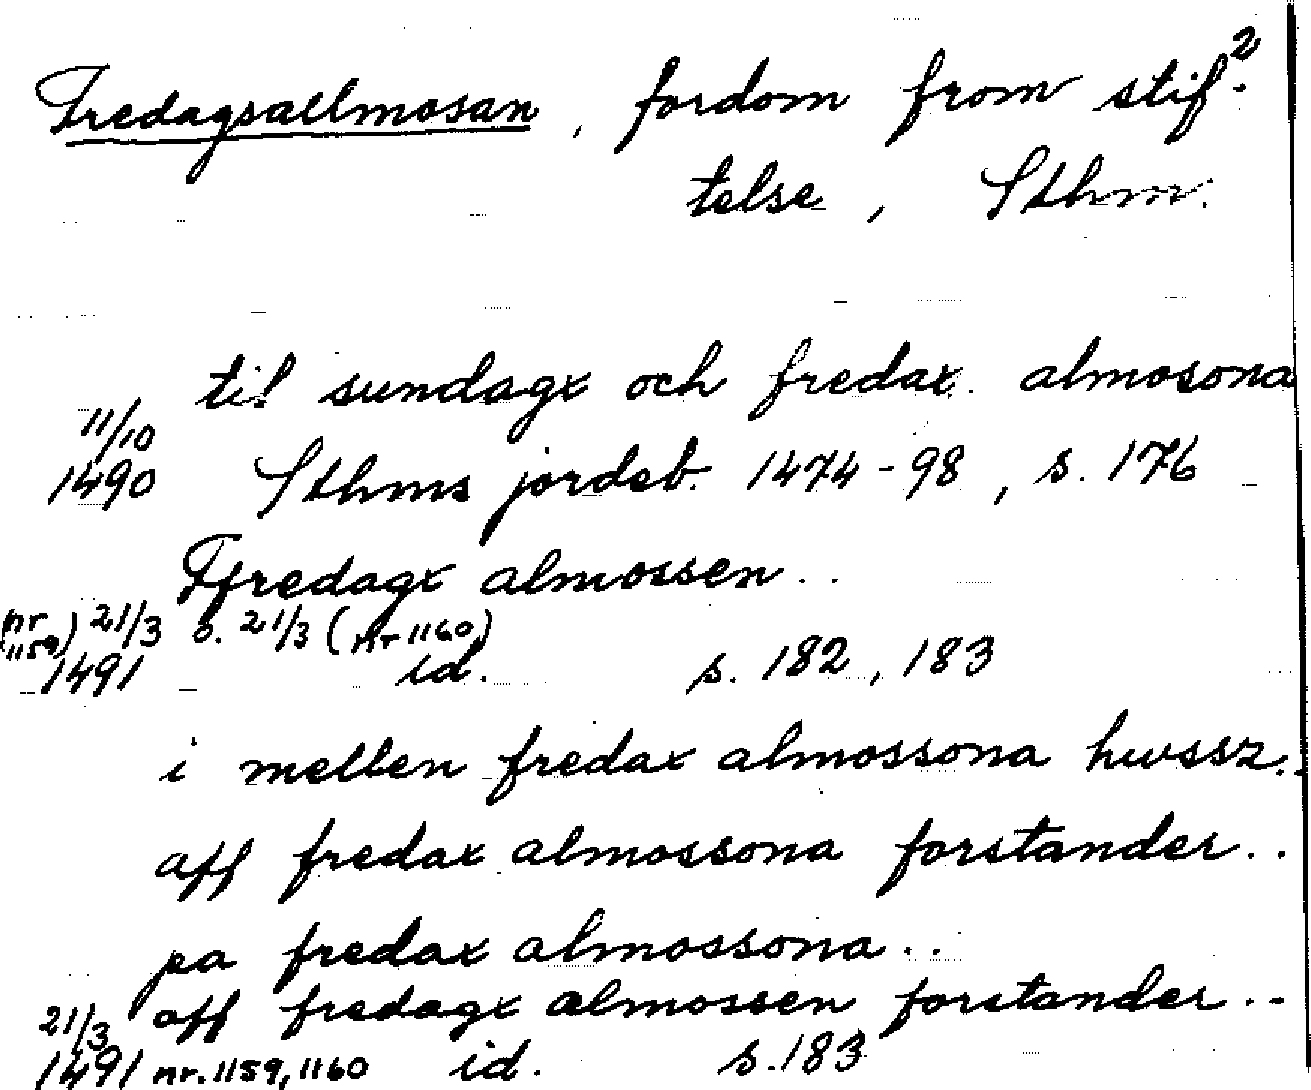 2
Fredagsallmosan, fordom from stif-
telse, Sthm.
til sundagx och fredax almosona
11/10
1490 Sthms jordeb. 1474-98, s. 176
Ffredagx almossen..
(nr 1159) 21/3 o. 21/3 (nr 1160)
1491 id. s. 182, 183
i mellen fredax almossona hwssz..
aff fredax almossona forstander..
pa fredax almossona..
21/3 aff fredagx almossen forstander..
1491 nr. 1159, 1160 id. s. 183